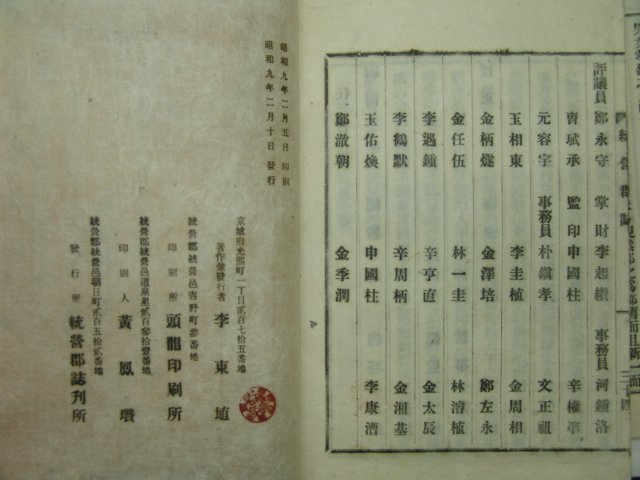 評議員 鄭永守 掌財 李起纘 事務員 河鍾洛
曺斌承 監印 申國柱 辛權準
元容宇 事務員 朴鎭孝 文正祖
玉相東 李圭植 金周相
金柄燧 金澤培 鄭左永
金任伍 林一圭 林濬植
李遇鍾 辛亨直 金太辰
李鶴默 辛周柄 金湘基
玉佑煥 申國柱 李康漕
鄭澈朝 金季潤
昭和九年二月五日 印刷
昭和九年二月十日 發行
京城府光熙町一丁目貳百七拾五番地
著作兼發行者 李東埴
統營郡統營邑吉野町參番地
印刷所 頭龍印刷所
統營郡統營邑道泉里貳百參拾壹番地
印刷人 黃鳳瓚
統營郡統營邑朝日町貳百五拾貳番地
發行所 統營郡誌刊所